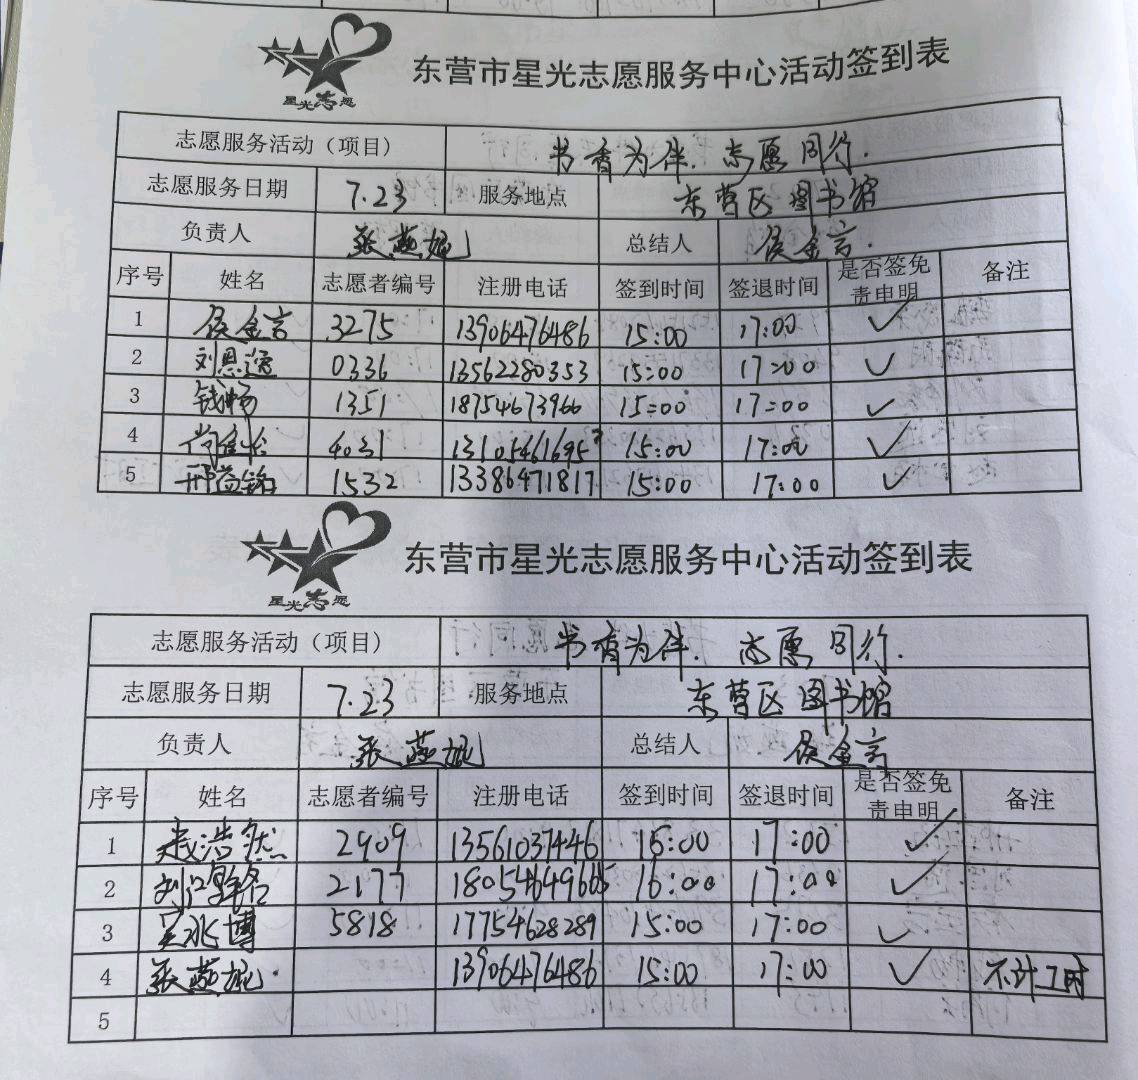 星光志愿
东营市星光志愿服务中心活动签到表
志愿服务活动（项目） 书香为伴.志愿同行.
志愿服务日期 7.23 服务地点 东营区图书馆
负责人 张燕妮 总结人 侯金言.
序号 姓名 志愿者编号 注册电话 签到时间 签退时间 是否签免责申明 备注
1 侯金言 3275 13906476486 15:00 17:00 ✓
2 刘恩逸 0336 13562280353 15:00 17:00 ✓
3 钱畅 1351 18754673966 15:00 17:00 ✓
4 4031 15:00 17:00 ✓
5 邢益铭 1532 13386471817 15:00 17:00 ✓
星光志愿
东营市星光志愿服务中心活动签到表
志愿服务活动（项目） 书香为伴.志愿同行.
志愿服务日期 7.23 服务地点 东营区图书馆
负责人 张燕妮 总结人 侯金言
序号 姓名 志愿者编号 注册电话 签到时间 签退时间 是否签免责申明 备注
1 浩然 2909 13561037446 16:00 17:00 ✓
2 刘 2177 16:00 17:00 ✓
3 吴兆博 5818 17754628289 15:00 17:00 ✓
4 张燕妮. 13906476486 15:00 17:00 ✓ 不计工时
5